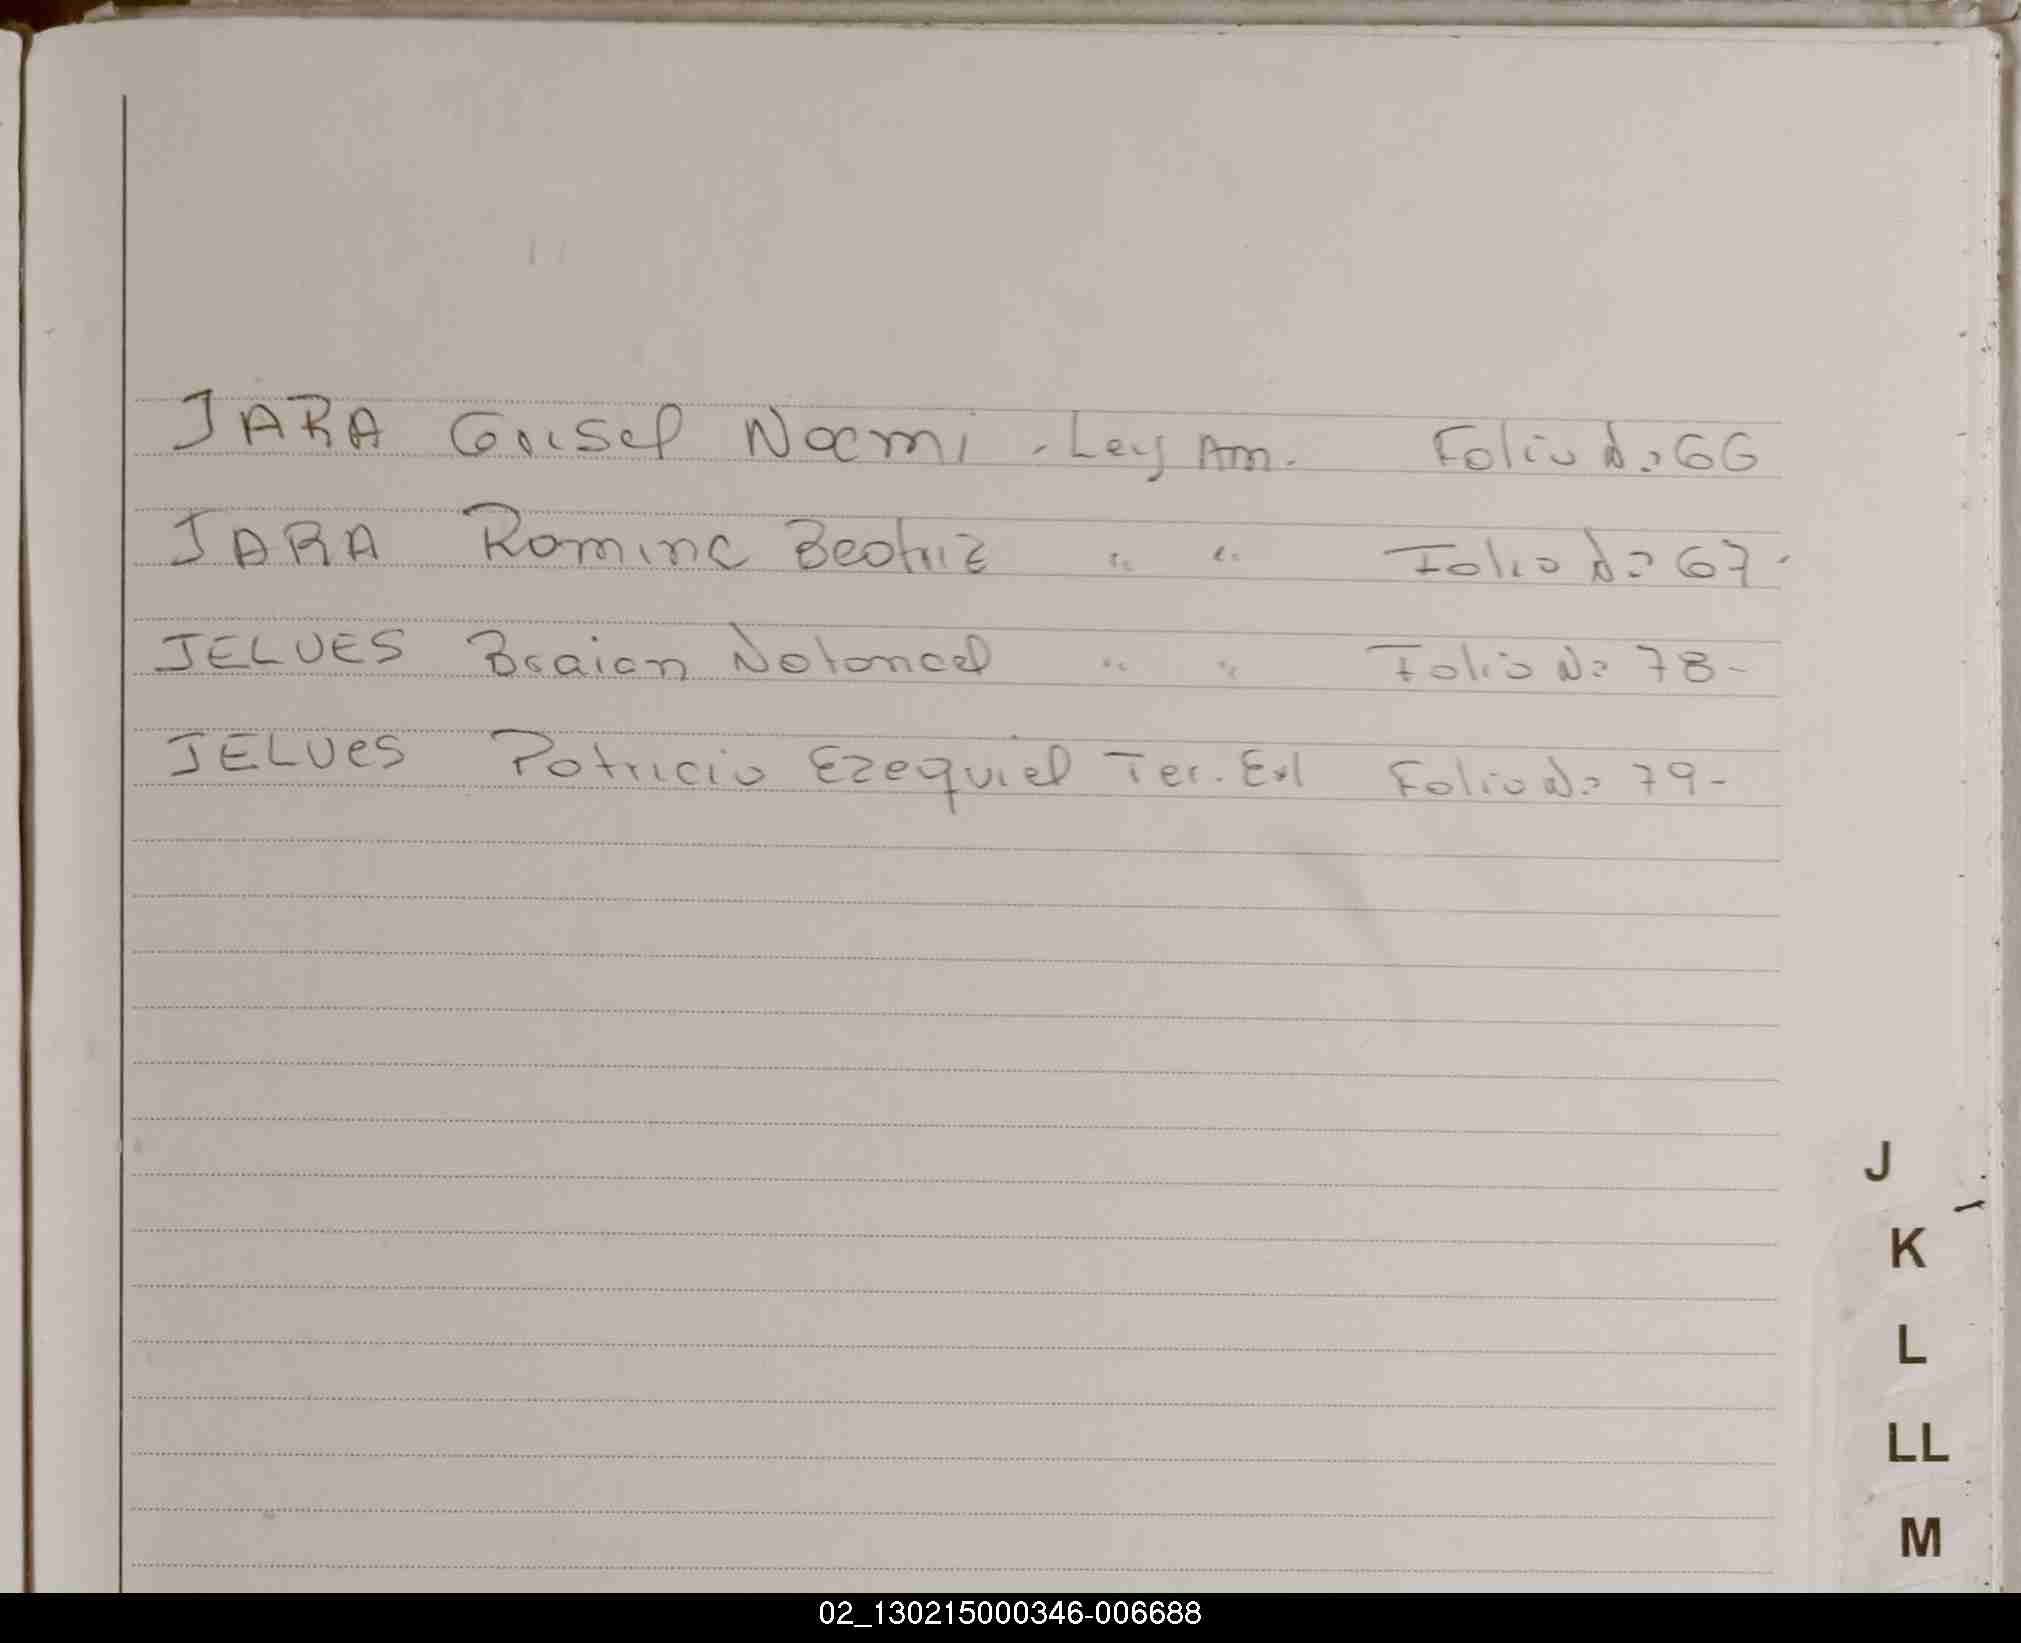 JARA Gisel Noemi - Ley Am. Folio Nº 66
JARA Romina Beatriz " " Folio Nº 67-
JELVES Braian Notanael " " Folio Nº 78-
JELVES Patricio Ezequiel Ter. Exl Folio Nº 79-
J
K
L
LL
M
02_130215000346-006688